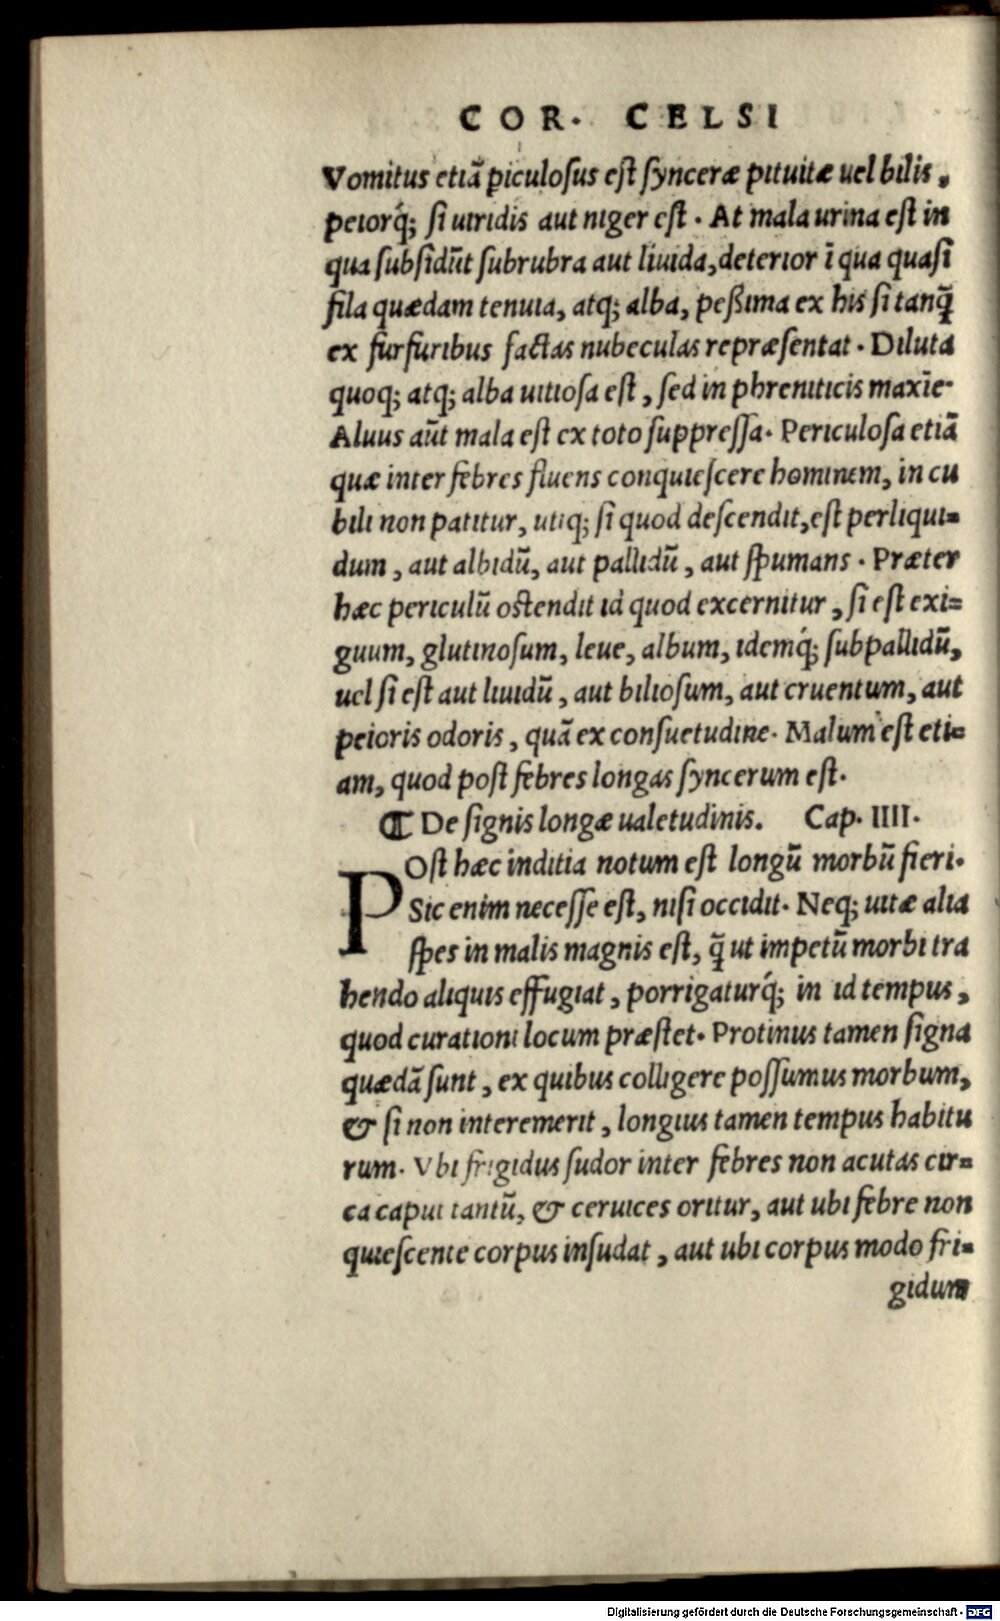 COR. CELSI
Vomitus etiã ꝑiculosus est synceræ pituitæ uel bilis,
peiorq́; si uiridis aut niger est. At mala urina est in
qua subsidũt subrubra aut liuida, deterior ĩ qua quasi
fila quædam tenuia, atq; alba, peßima ex his si tanq̃
ex furfuribus factas nubeculas repræsentat. Diluta
quoq; atq; alba uitiosa est, sed in phreniticis maxĩe.
Aluus aũt mala est ex toto suppressa. Periculosa etiã
quæ inter febres fluens conquiescere hominem, in cu
bili non patitur, utiq; si quod descendit, est perliqui=
dum, aut albidũ, aut pallidũ, aut spumans. Præter
hæc periculũ ostendit id quod excernitur, si est exi=
guum, glutinosum, leue, album, idemq́; subpallidũ,
uel si est aut liuidũ, aut biliosum, aut cruentum, aut
peioris odoris, quã ex consuetudine. Malum est eti=
am, quod post febres longas syncerum est.
¶ De signis longæ ualetudinis. Cap. IIII.
POst hæc inditia notum est longũ morbũ fieri.
Sic enim necesse est, nisi occidit. Neq; uitæ alia
spes in malis magnis est, q̃ ut impetũ morbi tra
hendo aliquis effugiat, porrigaturq́; in id tempus,
quod curationi locum præstet. Protinus tamen signa
quædã sunt, ex quibus colligere possumus morbum,
& si non interemerit, longius tamen tempus habitu
rum. Vbi frigidus sudor inter febres non acutas cir=
ca caput tantũ, & ceruices oritur, aut ubi febre non
quiescente corpus insudat, aut ubi corpus modo fri=
gidum
Digitalisierung gefördert durch die Deutsche Forschungsgemeinschaft - DFG